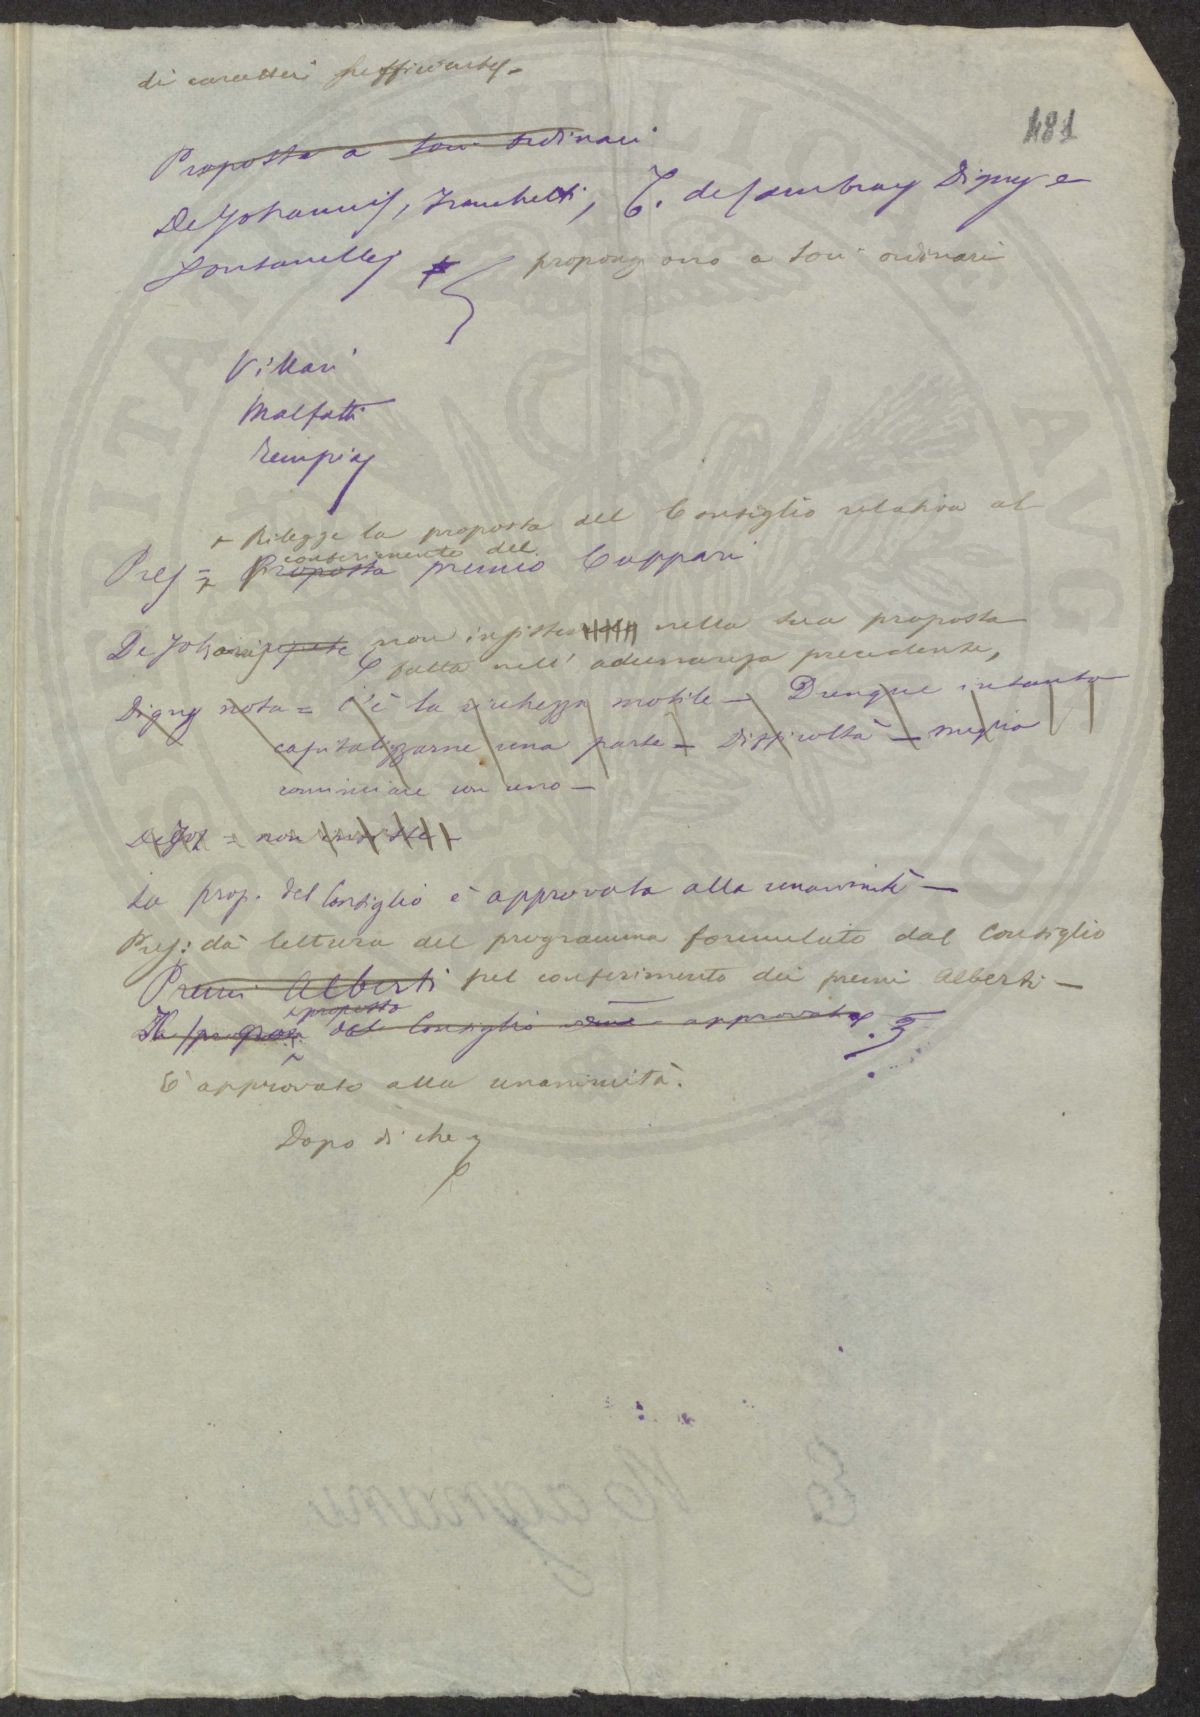 di caratteri sufficienti.
181
Proposta a soci ordinari
De Johannis, Franchetti, C. de Cambray Digny e
Fontanelli propongono a soci ordinari
Villari
Malfatti
Sempia
+ Rilegge la proposta del Consiglio relativa al
conferimento del
Pres = Proposta premio Cuppari
De Johannis ripete non insiste nella sua proposta
fatta nell' adunanza precedente,
Digny nota = C'è la ricchezza mobile — Dunque intanto
capitalizzarne una parte — Difficoltà — meglio
cominciare con uno —
De Joh = non insiste —
La prop. del Consiglio è approvata alla unanimità —
Pres: dà lettura del programma formulato dal Consiglio
Premi Alberti pel conferimento dei premi Alberti —
proposta
del Consiglio viene approvata.
È approvato alla unanimità.
Dopo di che